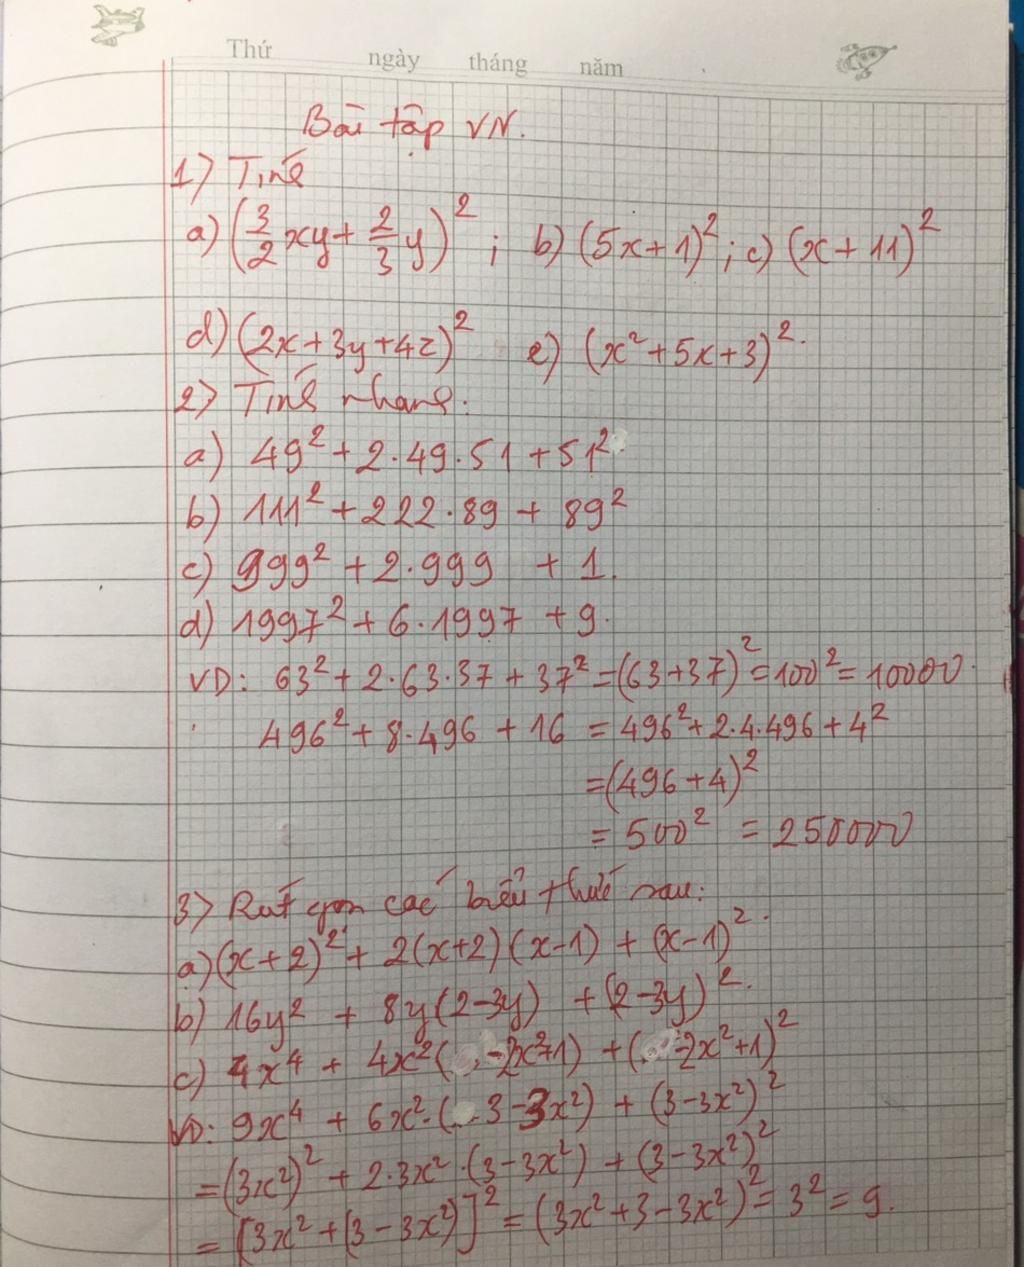 Thứ ngày tháng năm
Bài tập VN.
1) Tính
a) (3/2 xy + 2/3 y)² ; b) (5x+1)² ; c) (x+11)²
d) (2x+3y+4z)² e) (x²+5x+3)².
2) Tính nhanh.
a) 49² + 2.49.51 + 51²
b) 111² + 222.89 + 89²
c) 999² + 2.999 + 1.
d) 1997² + 6.1997 + 9.
VD: 63² + 2.63.37 + 37² = (63+37)² = 100² = 10000.
496² + 8.496 + 16 = 496² + 2.4.496 + 4²
= (496+4)²
= 500² = 250000
3) Rút gọn các biểu thức sau:
a) (x+2)² + 2(x+2)(x-1) + (x-1)².
b) 16y² + 8y(2-3y) + (2-3y)².
c) 4x⁴ + 4x²(-2x²+1) + (-2x²+1)²
VD: 9x⁴ + 6x².(3-3x²) + (3-3x²)²
= (3x²)² + 2.3x².(3-3x²) + (3-3x²)²
= [3x² + (3-3x²)]² = (3x²+3-3x²)² = 3² = 9.